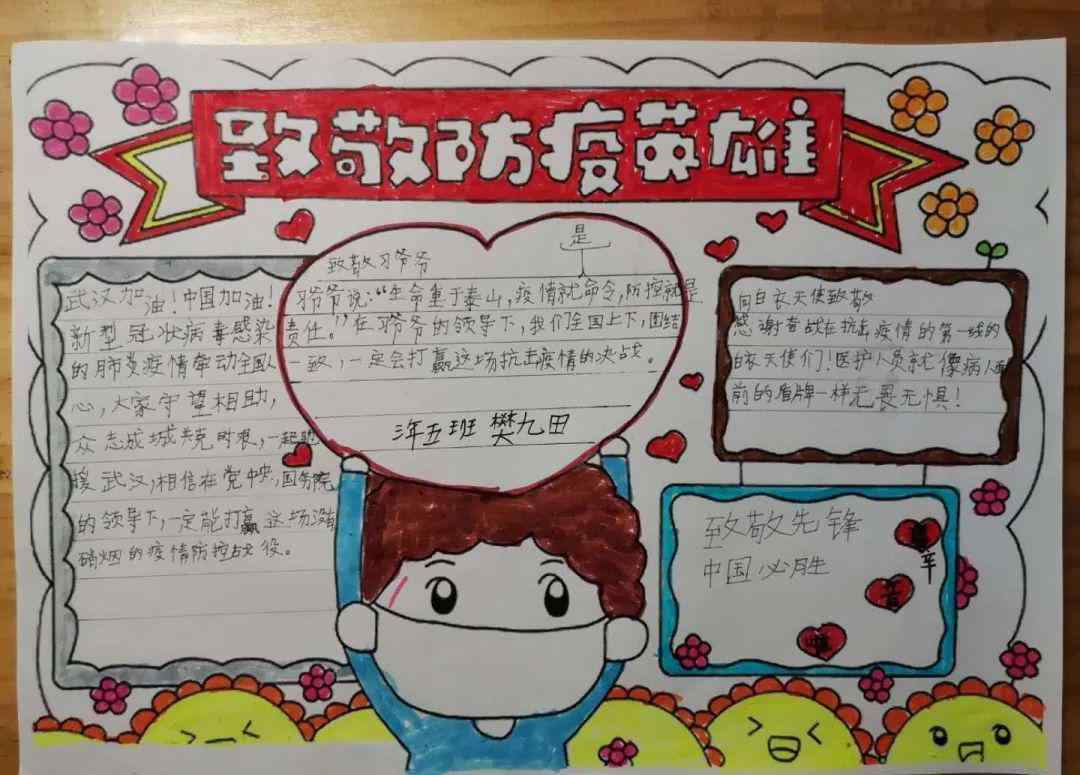 致敬防疫英雄
武汉加油！中国加油！
新型冠状病毒感染
的肺炎疫情牵动全国人
心，大家守望相助，
众志成城共克时艰，一起驰
援武汉，相信在党中央，国务院
的领导下，一定能打赢这场没有
硝烟的疫情防控战役。
致敬习爷爷
是
习爷爷说：“生命重于泰山，疫情就命令，防控就是
责任。”在习爷爷的领导下，我们全国上下，团结
一致，一定会打赢这场抗击疫情的决战。
三年五班 樊九田
向白衣天使致敬
感谢奋战在抗击疫情的第一线的
白衣天使们！医护人员就像病人面
前的盾牌一样无畏无惧！
致敬先锋
中国必胜
辛